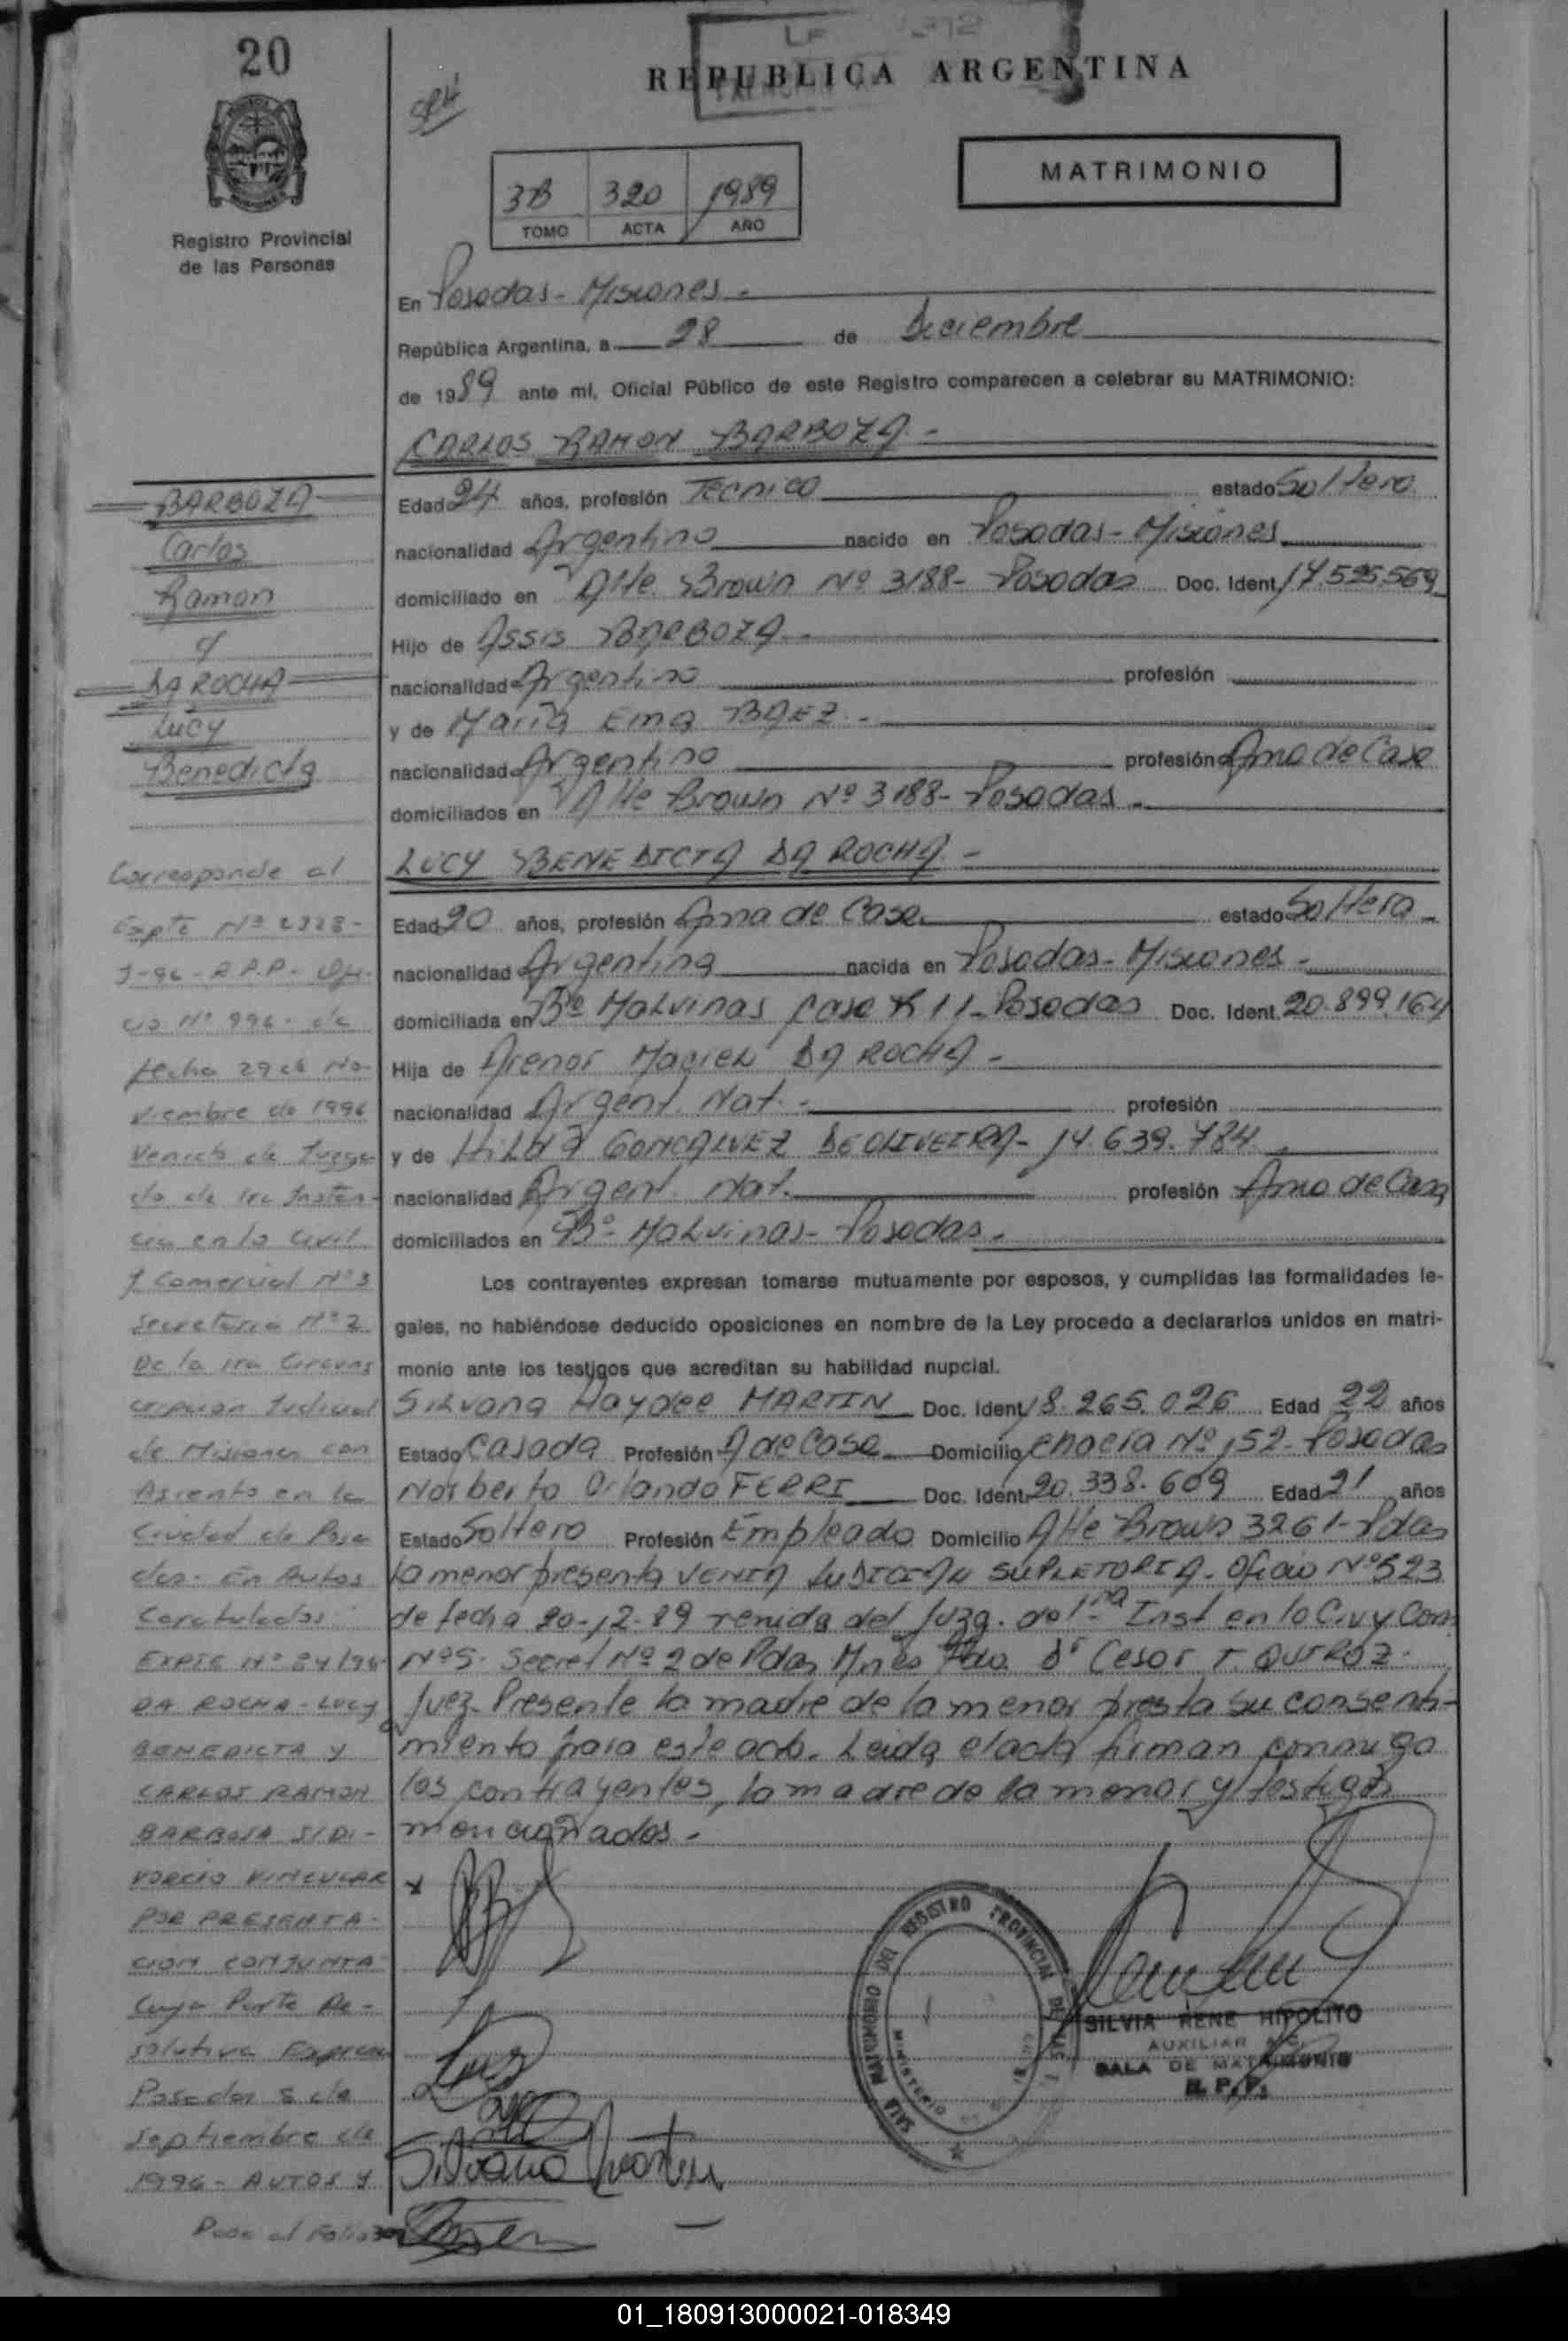 20
REPUBLICA ARGENTINA
MATRIMONIO
3B 320 1989
TOMO ACTA AÑO
Registro Provincial
de las Personas
En Posadas - Misiones -
República Argentina, a 28 de Diciembre
de 1989 ante mí, Oficial Público de este Registro comparecen a celebrar su MATRIMONIO:
CARLOS RAMON BARBOZA -
Edad 24 años, profesión Tecnico estado Soltero
nacionalidad Argentino nacido en Posadas - Misiones
domiciliado en Alte. Brown Nº 3188 - Posadas Doc. Ident. 17.525.569
Hijo de Assis BARBOZA -
nacionalidad Argentino profesión
y de Maria Ema BAEZ -
nacionalidad Argentino profesión Ama de Casa
domiciliados en Alte Brown Nº 3188 - Posadas -
LUCY BENEDICTA DA ROCHA -
Edad 20 años, profesión Ama de Casa estado Soltera -
nacionalidad Argentina nacida en Posadas - Misiones -
domiciliada en Bº Malvinas Casa K 11 - Posadas Doc. Ident. 20.899.164
Hija de Arenor Maciel DA ROCHA -
nacionalidad Argent. Nat. - profesión
y de HILDA GONCALVEZ DE OLIVEIRA - 14.639.784
nacionalidad Argent. Nat. profesión Ama de Casa
domiciliados en Bº Malvinas - Posadas.
Los contrayentes expresan tomarse mutuamente por esposos, y cumplidas las formalidades le-
gales, no habiéndose deducido oposiciones en nombre de la Ley procedo a declararlos unidos en matri-
monio ante los testigos que acreditan su habilidad nupcial.
Silvana Haydee MARTIN Doc. Ident. 18.265.026 Edad 22 años
Estado Casada Profesión A de Casa Domicilio Nº 152 - Posadas
Norberto Orlando FERRI Doc. Ident. 20.338.609 Edad 21 años
Estado Soltero Profesión Empleado Domicilio Alte Brown 3261 - Pdas
la menor presenta VENIA JUDICIAL SUPLETORIA - Oficio Nº 523
de fecha 20-12-89 venida del Juzg. de 1ra Inst en lo Civ y Com
Nº 5. Secret Nº 2 de Pdas Mnes Fdo. Dr Cesar T. QUIROZ.
Juez - Presente la madre de la menor presta su consenti-
miento para este acto. Leida el acta firman conmigo
los contrayentes, la madre de la menor y testigos
mencionados -
BARBOZA
Carlos
Ramon
y
DA ROCHA
Lucy
Benedicta
Corresponde al
Expte Nº 2328-
J-96 - R.P.P. - Ofi-
cio Nº 996 - de
fecha 29 de No-
viembre de 1996
Venido de Juzga-
do de 1ra Instan-
cia en lo Civil
y Comercial Nº 3
Secretaria Nº 2
De la 1ra Circuns
cripcion Judicial
de Misiones con
Asiento en la
Ciudad de Posa
das - En Autos
Caratulados:
EXPTE Nº 24/96
DA ROCHA - LUCY
BENEDICTA Y
CARLOS RAMON
BARBOZA S/DI-
VORCIO VINCULAR
POR PRESENTA-
CION CONJUNTA
Cuya Parte Re-
solutiva Expresa
Posadas 5 de
Septiembre de
1996 - AUTOS Y
Pasa al Folio
Silvana Martin
SALA MATRIMONIO DEL REGISTRO PROVINCIAL DE LAS
MINISTERIO
SILVIA RENE HIPOLITO
AUXILIAR
SALA DE MATRIMONIO
R.P.P.
01_180913000021-018349